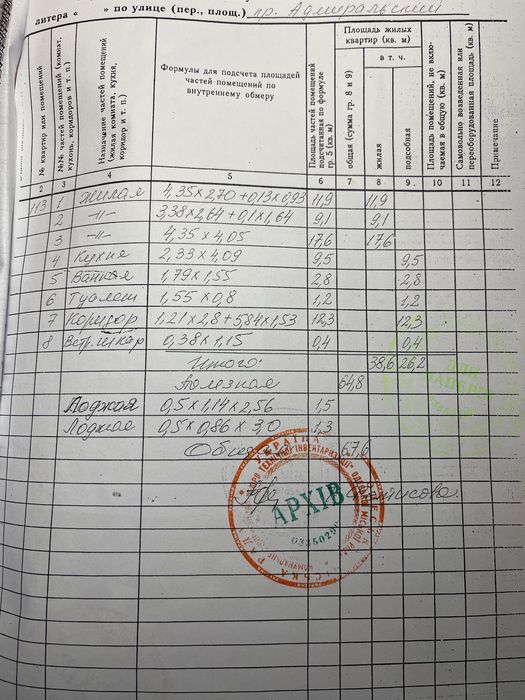 литера « » по улице (пер., площ.) пр. Адмиральский
№ квартир или помещений
№№ частей помещений (комнат, кухонь, коридоров и т. п.)
Назначение частей помещений (жилая комната, кухня, коридор и т. п.)
Формулы для подсчета площадей частей помещений по внутреннему обмеру
Площадь частей помещений подсчитанная по формуле гр. 5 (кв. м)
Площадь жилых квартир (кв. м)
общая (сумма гр. 8 и 9)
в т. ч.
жилая
подсобная
Площадь помещений, не включаемая в общую (кв. м)
Самовольно возведенная или переоборудованная площадь (кв. м)
Примечание
2 3 4 5 6 7 8 9. 10 11 12
113 1 Жилая 4,35×2,70+0,13×0,93 11,9 11,9
2 -"- 3,38×2,64+0,1×1,64 9,1 9,1
3 -"- 4,35×4,05 17,6 17,6
4 Кухня 2,33×4,09 9,5 9,5
5 Ванная 1,79×1,55 2,8 2,8
6 Туалет 1,55×0,8 1,2 1,2
7 Коридор 1,21×2,8+5,84×1,53 12,3 12,3
8 Встр. шкаф 0,38×1,15 0,4 0,4
Итого: 38,6 26,2
Полезная 64,8
Лоджая 0,5×1,14×2,56 1,5
Лоджая 0,5×0,86×3,0 1,3
67,6
УКРАЇНА
АРХІВ
ДЛЯ
ПАПЕРІВ